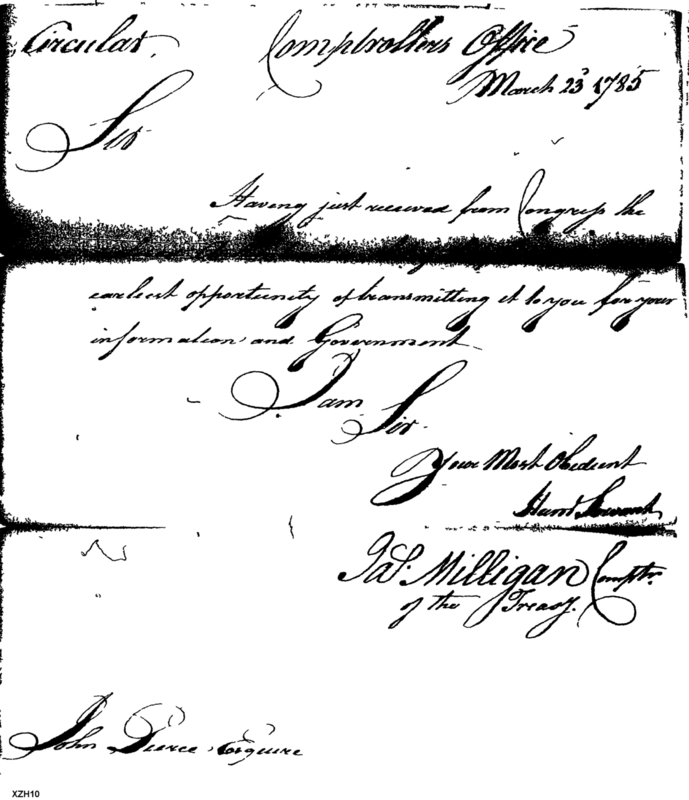 Circular. Comptrollers Office
March 23d 1785
Sir
Having just received from Congress the
earliest opportunity of transmitting it to you for your
information and Government
I am Sir
Your Most Obedient
Humb Servant
Jas. Milligan Comptr.
of the Treasy.
John Pierce Esquire
XZH10